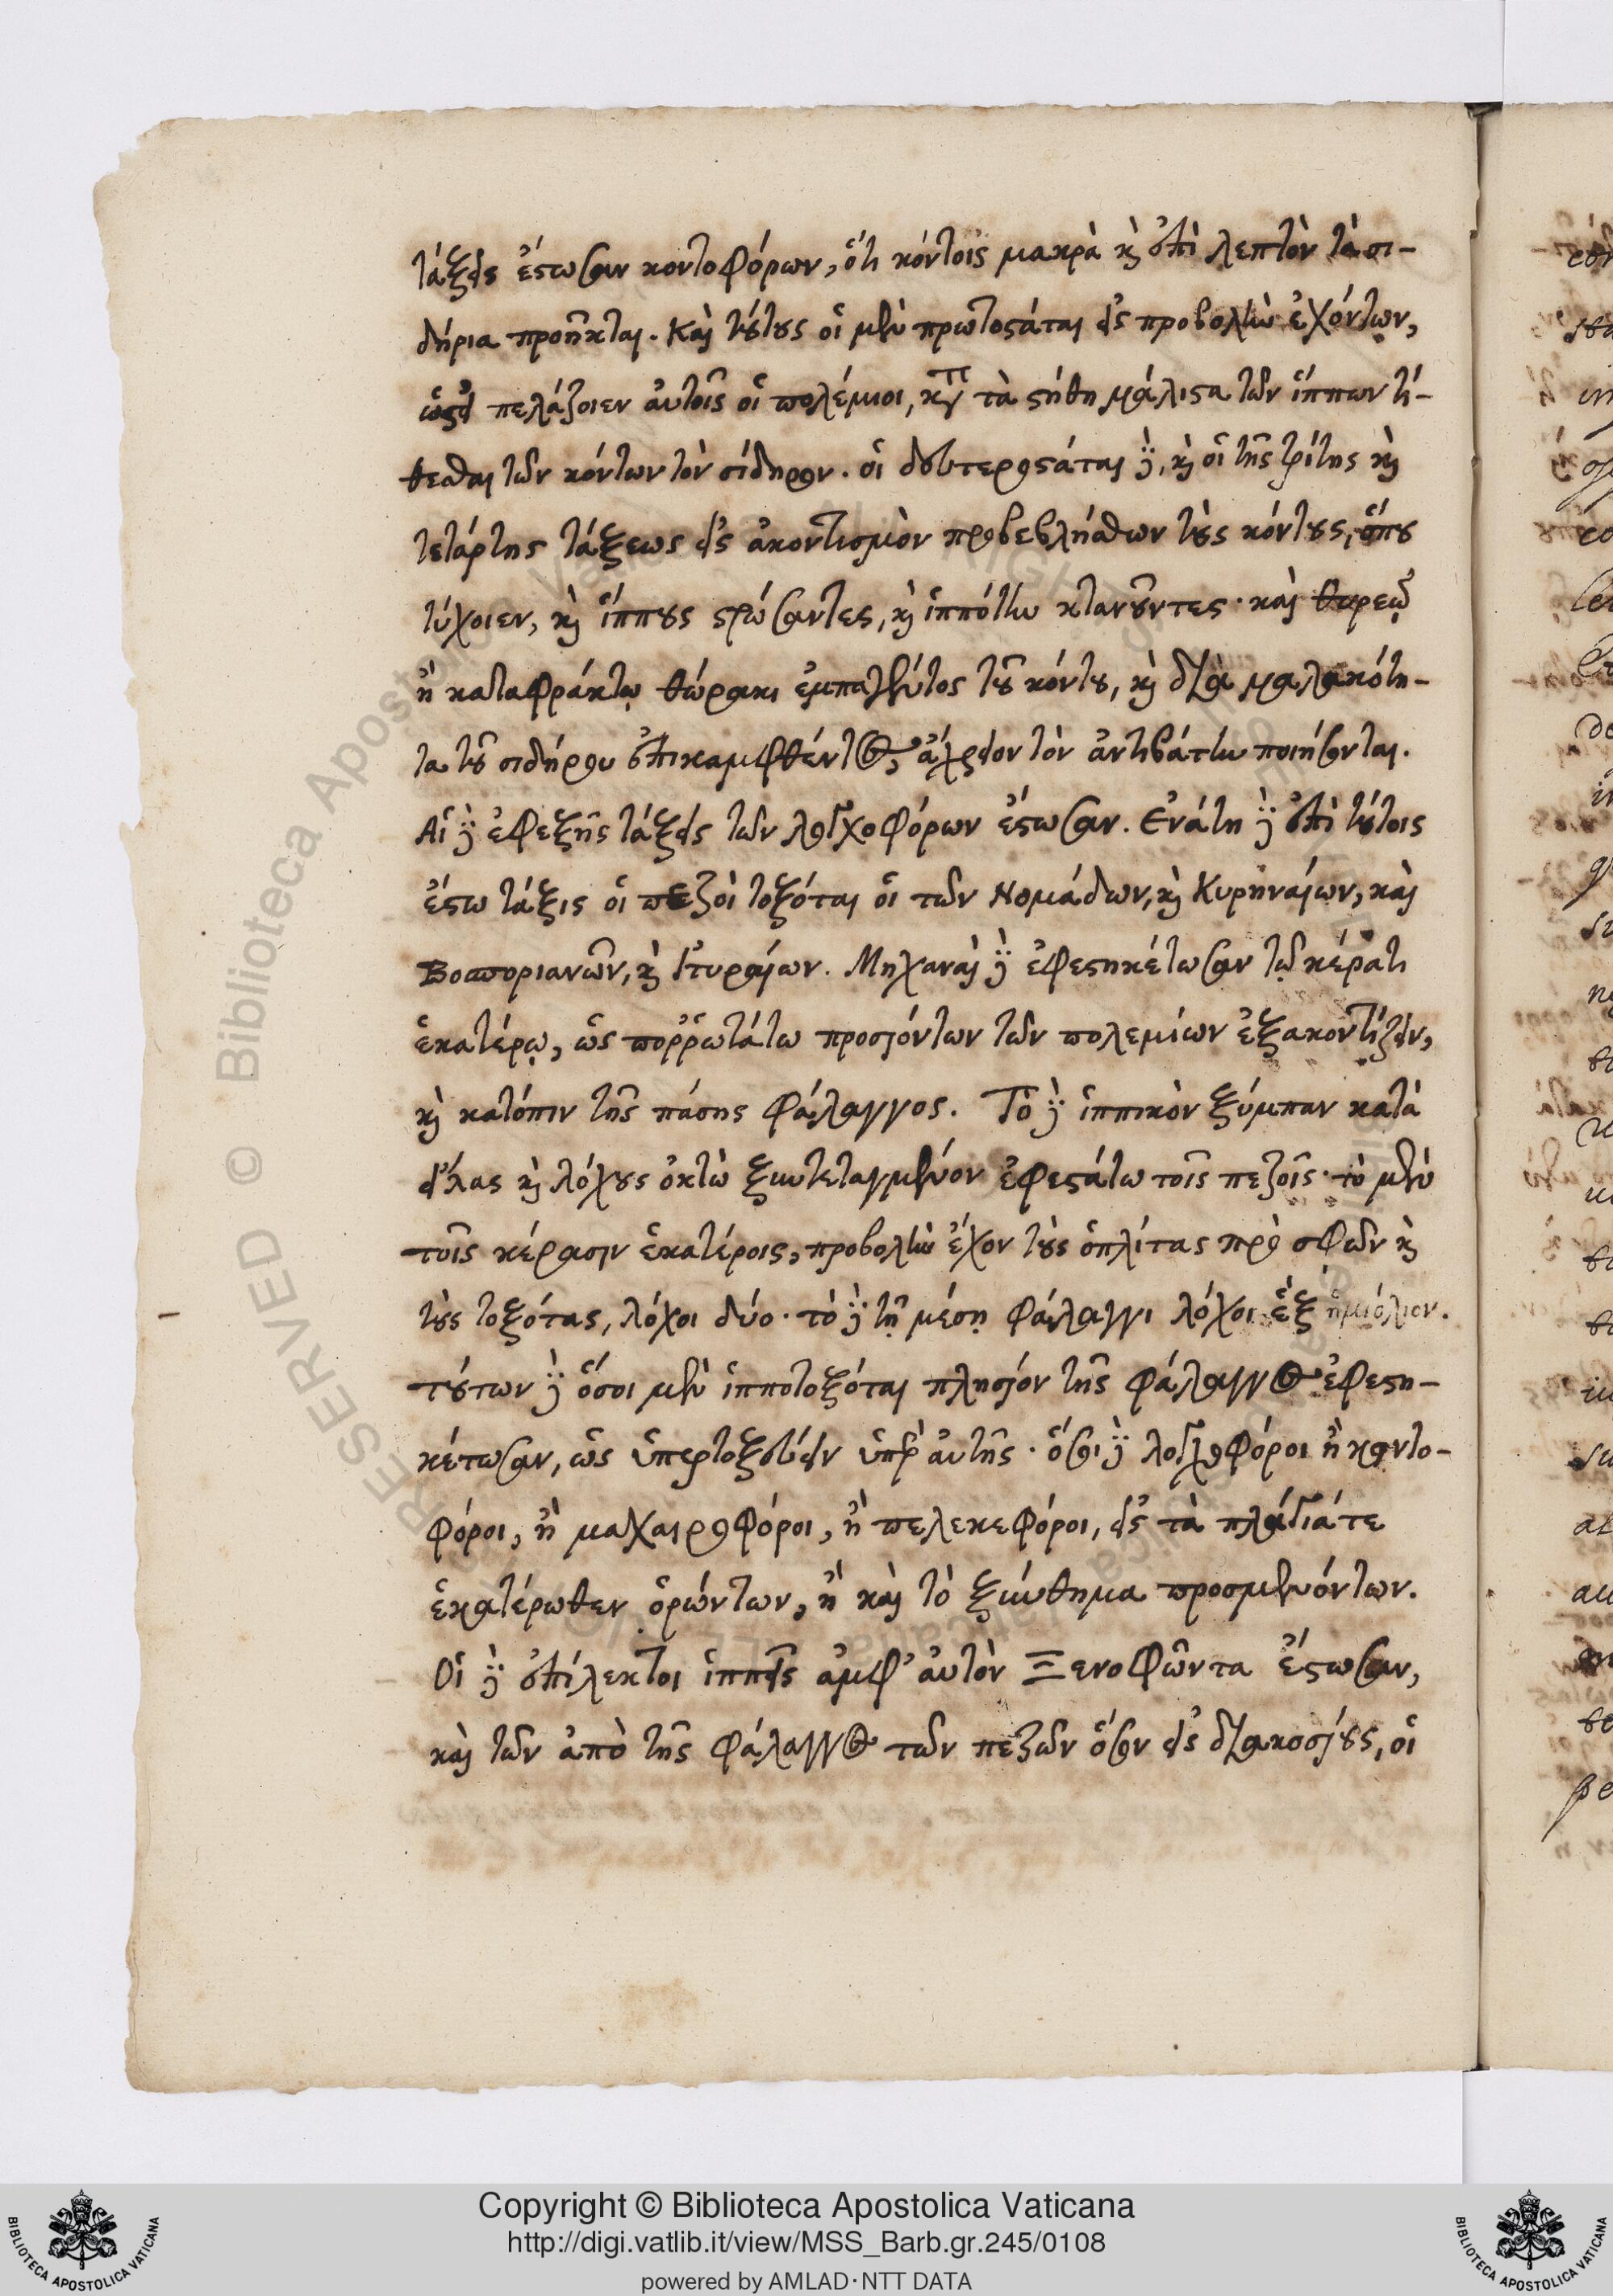 τάξεις ἔστωσαν κοντοφόρων, ὅτι κόντοις μακρὰ καὶ ἐπὶ λεπτὸν τὰ σι-
δήρια προῆκται. Καὶ τούτους οἱ μὲν πρωτοστάται εἰς προβολὴν ἐχόντων,
ὡς εἰ πελάζοιεν αὐτοῖς οἱ πολέμιοι, κατὰ τὰ στήθη μάλιστα τῶν ἵππων τί-
θεσθαι τῶν κόντων τὸν σίδηρον. οἱ δευτεροστάται δὲ, καὶ οἱ τῆς τρίτης καὶ
τετάρτης τάξεως εἰς ἀκοντισμὸν προβεβλήσθων τοὺς κόντους, ὅπου
τύχοιεν, καὶ ἵππους στρώσαντες, καὶ ἱππότην κτανοῦντες· καὶ θυρεῷ
ἢ καταφράκτῳ θώρακι ἐμπαγέντος τοῦ κόντου, καὶ διὰ μαλακότη-
τα τοῦ σιδήρου ἐπικαμφθέντος, ἀχρεῖον τὸν ἀντιβάτην ποιήσονται.
Αἱ δὲ ἐφεξῆς τάξεις τῶν λογχοφόρων ἔστωσαν. Ἐνάτη δὲ ἐπὶ τούτοις
ἔστω τάξις οἱ πεζοὶ τοξόται οἱ τῶν Νομάδων, καὶ Κυρηναίων, καὶ
Βοσποριανῶν, καὶ Ἰτυραίων. Μηχαναὶ δὲ ἐφεστηκέτωσαν τῷ κέρατι
ἑκατέρῳ, ὡς πορρωτάτω προσιόντων τῶν πολεμίων ἐξακοντίζειν,
καὶ κατόπιν τῆς πάσης φάλαγγος. Τὸ δὲ ἱππικὸν ξύμπαν κατὰ
εἴλας καὶ λόχους ὀκτὼ ξυντεταγμένον ἐφεστάτω τοῖς πεζοῖς· τὸ μὲν
τοῖς κέρασιν ἑκατέροις, προβολὴν ἔχον τοὺς ὁπλίτας πρὸ σφῶν καὶ
τοὺς τοξότας, λόχοι δύο· τὸ δὲ τῇ μέσῃ φάλαγγι λόχοι ἓξ ἡμιόλιον.
τούτων δὲ ὅσοι μὲν ἱπποτοξόται πλησίον τῆς φάλαγγος ἐφεστη-
κέτωσαν, ὡς ὑπερτοξεύειν ὑπὲρ αὐτῆς· ὅσοι δὲ λογχοφόροι ἢ κοντο-
φόροι, ἢ μαχαιροφόροι, ἢ πελεκεφόροι, εἰς τὰ πλάγιά τε
ἑκατέρωθεν ὁρώντων, ἢ καὶ τὸ ξύνθημα προσμενόντων.
Οἱ δὲ ἐπίλεκτοι ἱππεῖς ἀμφ' αὐτὸν Ξενοφῶντα ἔστωσαν,
καὶ τῶν ἀπὸ τῆς φάλαγγος τῶν πεζῶν ὅσον εἰς διακοσίους, οἱ
Copyright © Biblioteca Apostolica Vaticana
http://digi.vatlib.it/view/MSS_Barb.gr.245/0108
powered by AMLAD·NTT DATA